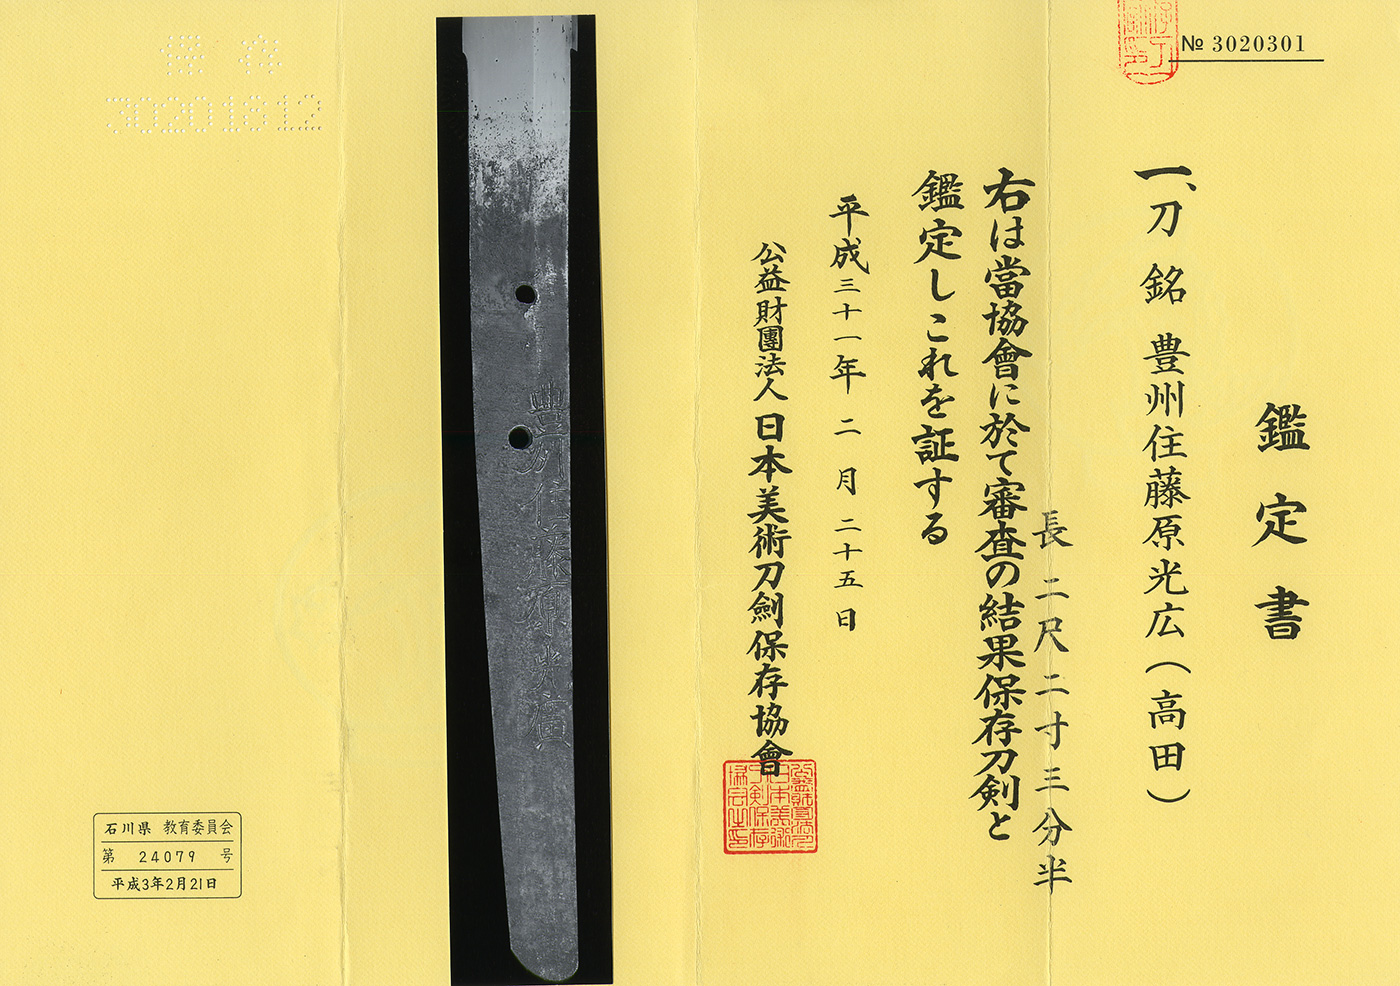 № 3020301
鑑定書
一、刀 銘 豊州住藤原光広（高田）
長 二尺二寸三分半
右は當協會に於て審査の結果保存刀剣と
鑑定しこれを証する
平成三十一年 二月 二十五日
公益財團法人 日本美術刀劍保存協會
豊州住藤原光廣
保存
30201812
石川県 教育委員会
第 24079 号
平成3年2月21日